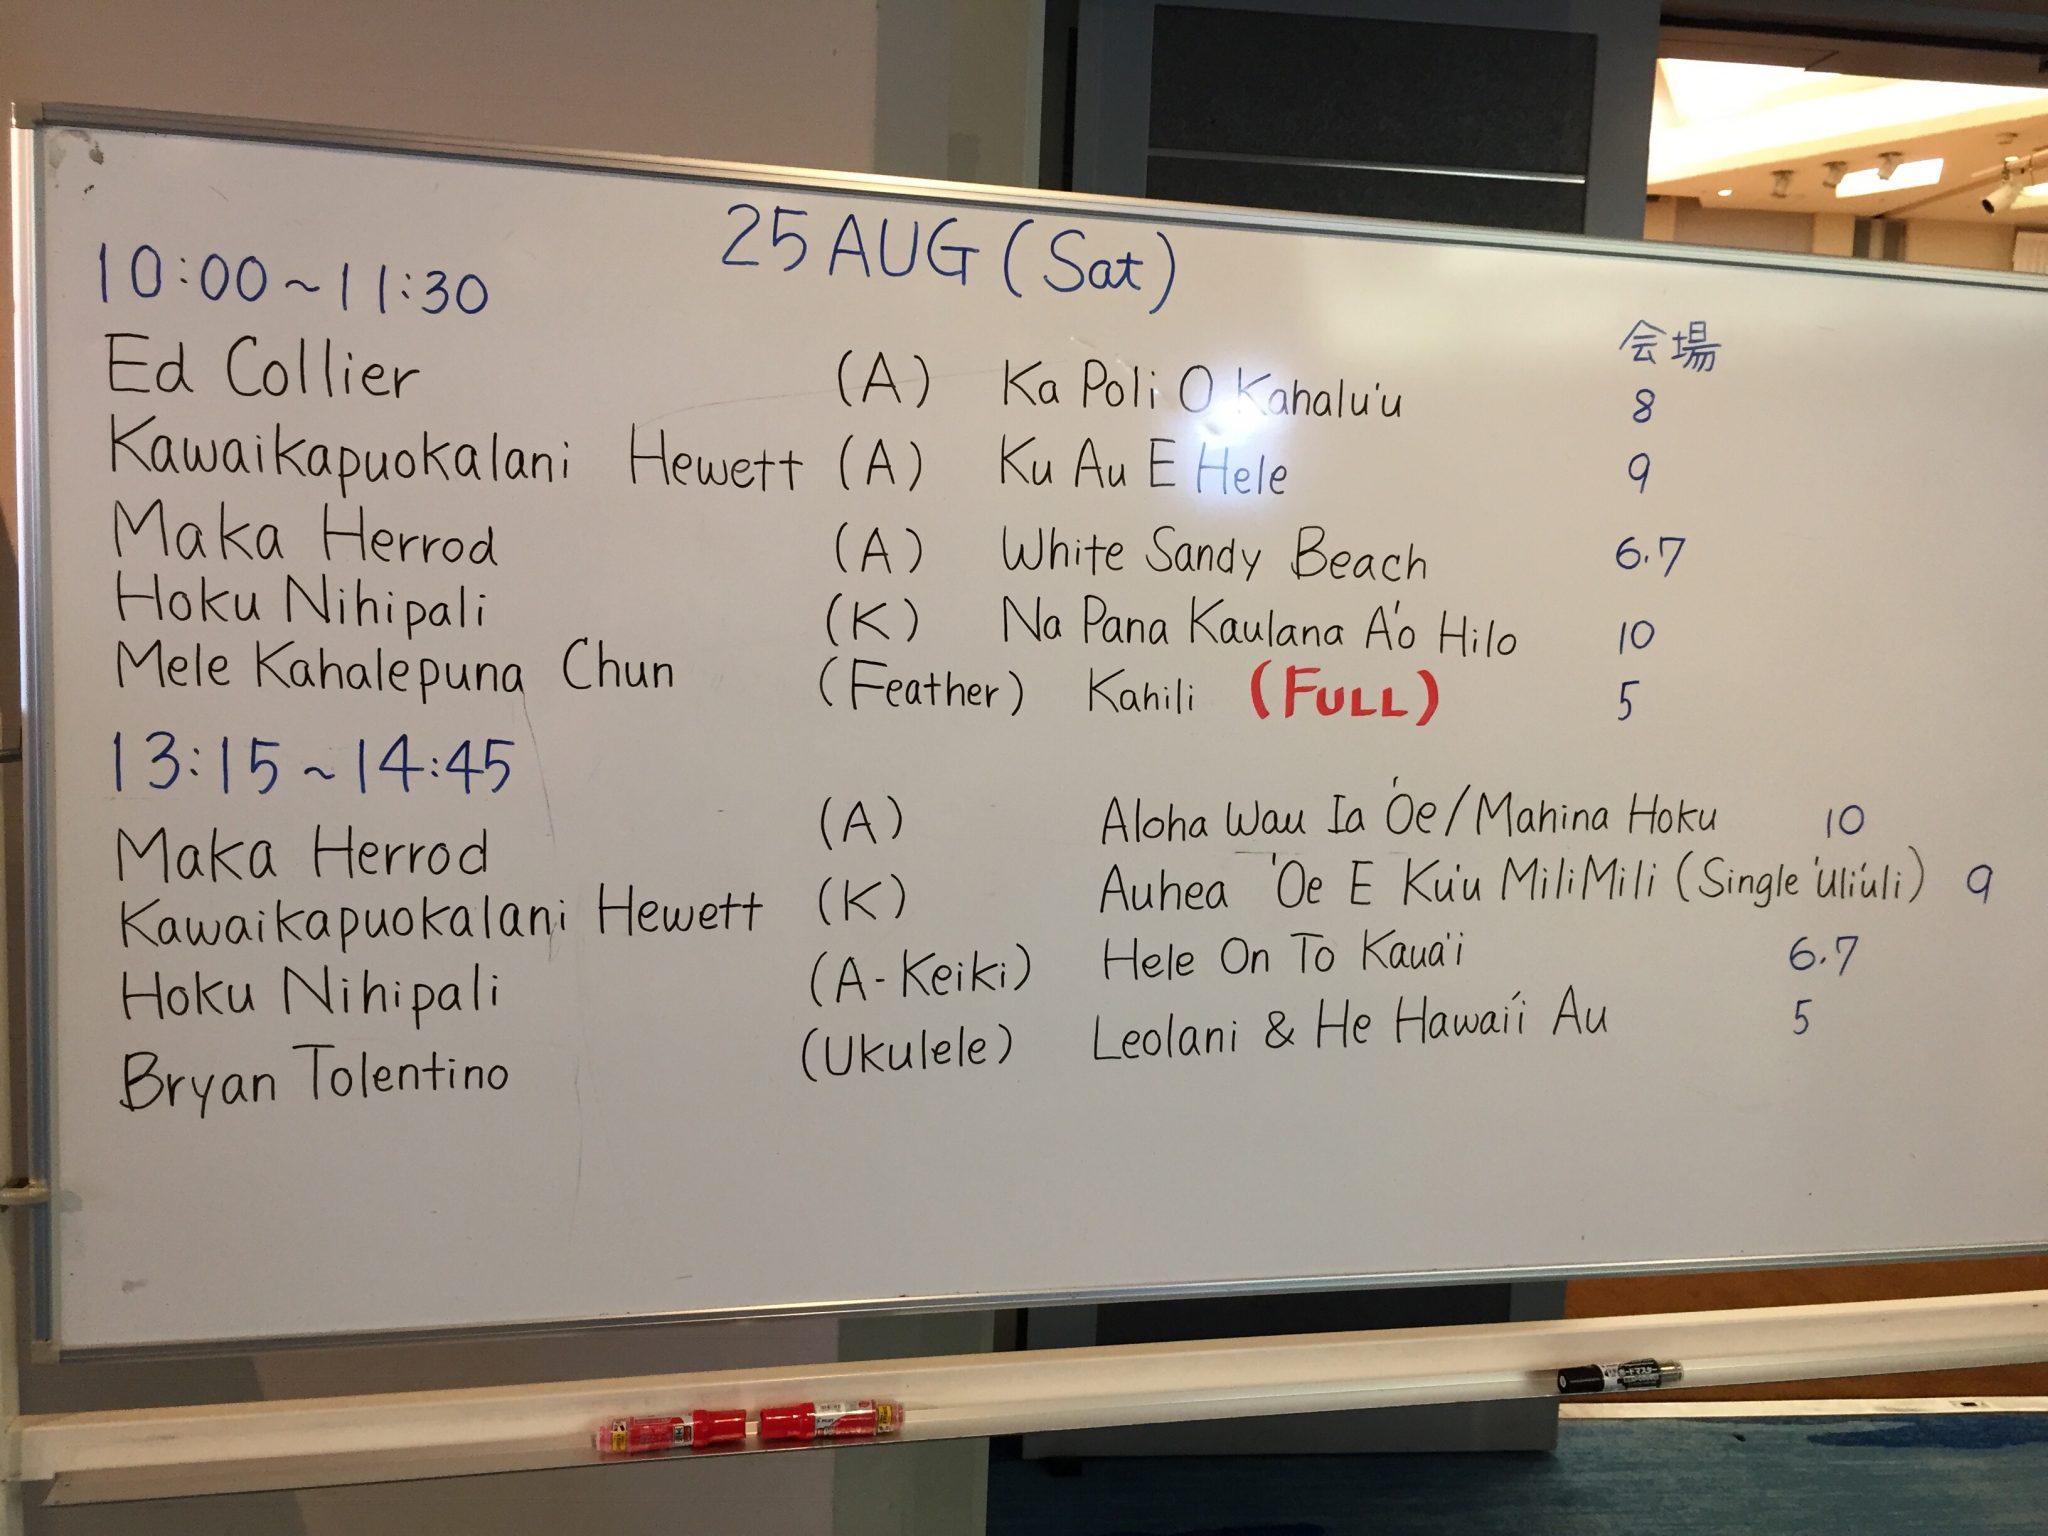 25 AUG (Sat)
10:00~11:30
会場
Ed Collier (A) Ka Poli O Kahalu'u 8
Kawaikapuokalani Hewett (A) Ku Au E Hele 9
Maka Herrod (A) White Sandy Beach 6.7
Hoku Nihipali (K) Na Pana Kaulana A'o Hilo 10
Mele Kahalepuna Chun (Feather) Kahili (FULL) 5
13:15~14:45
Maka Herrod (A) Aloha Wau Ia 'Oe/Mahina Hoku 10
Kawaikapuokalani Hewett (K) Auhea 'Oe E Ku'u MiliMili (Single 'Uli'uli) 9
Hoku Nihipali (A-Keiki) Hele On To Kaua'i 6.7
Bryan Tolentino (Ukulele) Leolani & He Hawai'i Au 5